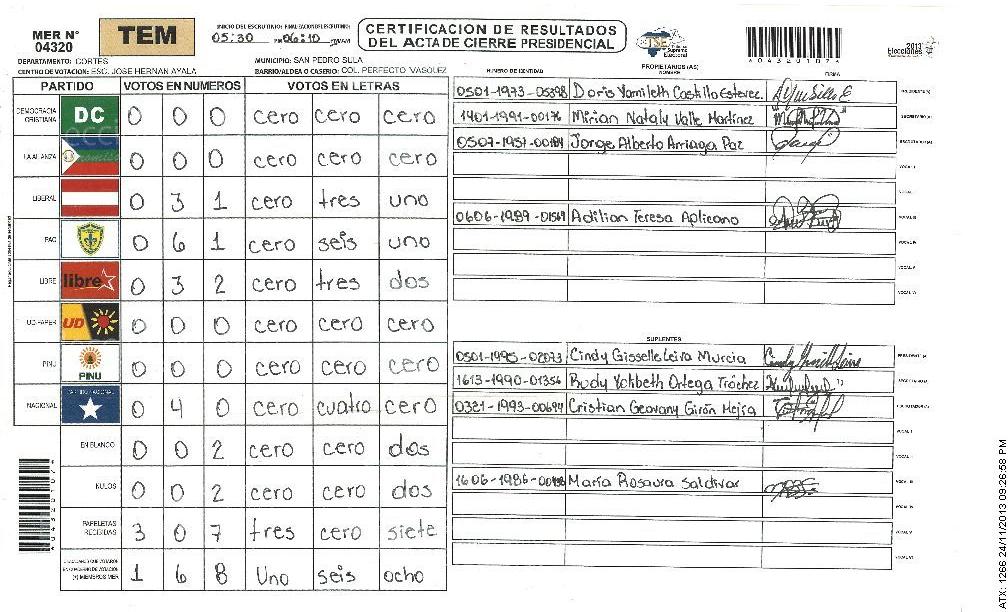 MER N° 04320
TEM
INICIO DEL ESCRUTINIO: FINALIZACION ESCRUTINIO:
05:30 PM 06:10
CERTIFICACION DE RESULTADOS
DEL ACTA DE CIERRE PRESIDENCIAL
TSE Tribunal Supremo Electoral
A04320107A
Elecciones 2013
DEPARTAMENTO: CORTES
MUNICIPIO: SAN PEDRO SULA
CENTRO DE VOTACION: ESC. JOSE HERNAN AYALA
BARRIO/ALDEA O CASERIO: COL. PERFECTO VASQUEZ
PARTIDO VOTOS EN NUMEROS VOTOS EN LETRAS
DEMOCRACIA CRISTIANA DC 0 0 0 cero cero cero
LA ALIANZA 0 0 0 cero cero cero
LIBERAL 0 3 1 cero tres uno
PAC 0 6 1 cero seis uno
LIBRE libre 0 3 2 cero tres dos
UD-FAPER UD 0 0 0 cero cero cero
PINU PINU 0 0 0 cero cero cero
NACIONAL PARTIDO NACIONAL 0 4 0 cero cuatro cero
EN BLANCO 0 0 2 cero cero dos
NULOS 0 0 2 cero cero dos
PAPELETAS RECIBIDAS 3 0 7 tres cero siete
1 6 8 Uno seis ocho
NUMERO DE IDENTIDAD PROPIETARIOS (AS) NOMBRE FIRMA
0501-1973-05398 Doris Yamileth Castillo Esterez PRESIDENTE (A)
1401-1991-00176 Mirian Nataly Valle Martinez SECRETARIO (A)
0507-1951-00184 Jorge Alberto Arriaga Paz ESCRUTADOR (A)
VOCAL I
VOCAL II
0606-1989-01569 Adilian Teresa Aplicano VOCAL III
VOCAL IV
VOCAL V
VOCAL VI
SUPLENTES
0501-1995-02073 Cindy Gisselle Leiva Murcia PRESIDENTE (A)
1613-1990-01356 Rudy Yohbeth Ortega Tróchez SECRETARIO (A)
0321-1993-00697 Cristian Geovany Girón Mejia ESCRUTADOR (A)
VOCAL I
VOCAL II
1606-1986-00498 María Rosaura Saldivar VOCAL III
VOCAL IV
VOCAL V
VOCAL VI
A04320107A
ATX: 1266 24/11/2013 09:26:58 PM